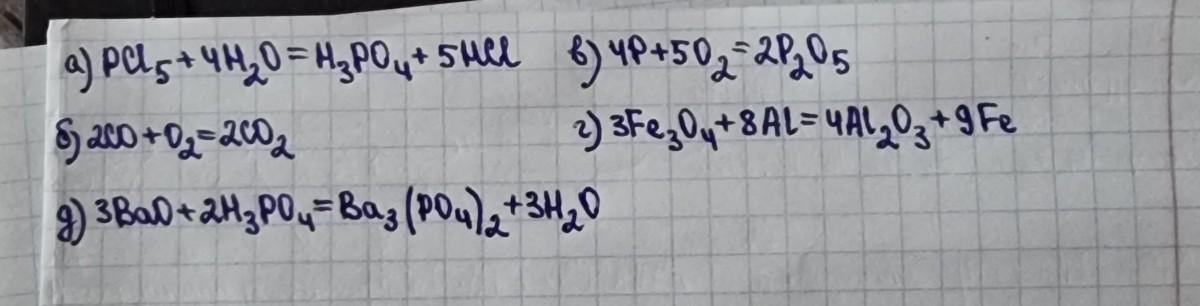 а) PCl₅ + 4H₂O = H₃PO₄ + 5HCl в) 4P + 5O₂ = 2P₂O₅
б) 2CO + O₂ = 2CO₂ г) 3Fe₃O₄ + 8Al = 4Al₂O₃ + 9Fe
д) 3BaO + 2H₃PO₄ = Ba₃(PO₄)₂ + 3H₂O